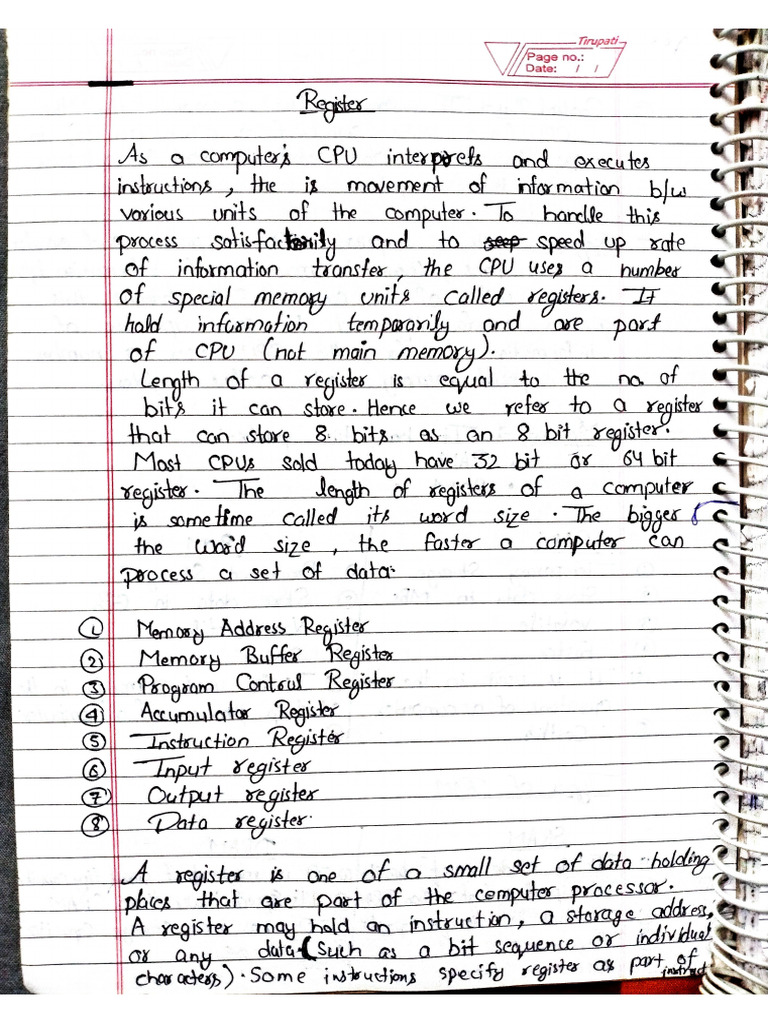 Tirupati
Page no.:
Date: / /
Register
As a computer's CPU interprets and executes
instructions, the is movement of information b/w
various units of the computer. To handle this
process satisfactorily and to speed up rate
of information transfer, the CPU uses a number
of special memory units called registers. It
hold information temporarily and are part
of CPU (not main memory).
Length of a register is equal to the no. of
bits it can store. Hence we refer to a register
that can store 8 bits as an 8 bit register.
Most CPUs sold today have 32 bit or 64 bit
register. The length of registers of a computer
is sometime called its word size. The bigger
the word size, the faster a computer can
process a set of data.
① Memory Address Register
② Memory Buffer Register
③ Program Control Register
④ Accumulator Register
⑤ Instruction Register
⑥ Input register
⑦ Output register
⑧ Data register.
A register is one of a small set of data holding
places that are part of the computer processor.
A register may hold an instruction, a storage address,
or any data (such as a bit sequence or individual
characters). Some instructions specify register as part of
instruct